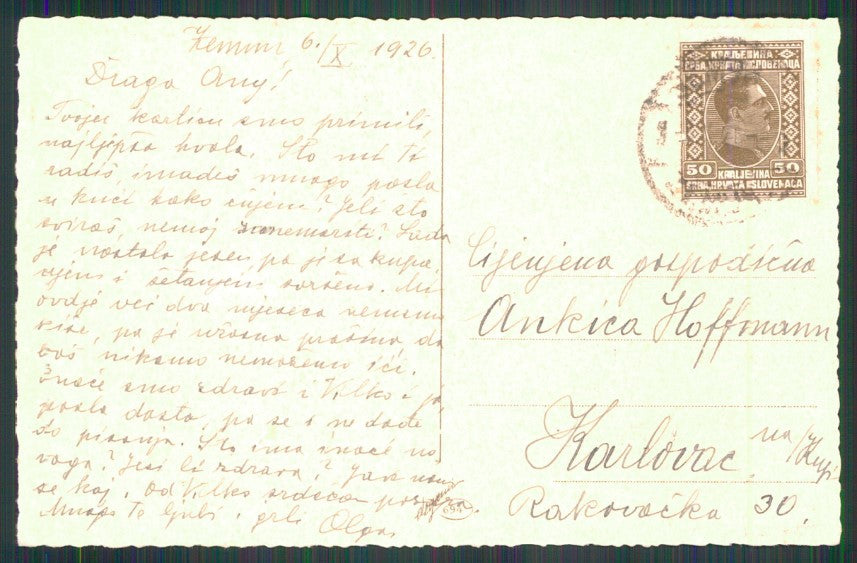 Zemun, 6./X. 1926.
Draga Any!
Tvoju karticu smo primili,
najljepša hvala. Što mi ti
radiš, imadeš mnogo posla
u kući kako čujem? Jeli što
sviraš, nemoj zanemarati? Sada
je nastala jesen pa je sa kupa-
njem i šetanjem svršeno. Mi
ovdje već dva mjeseca nemamo
kiše, pa je užasna prašina da
baš nikamo nemožemo ići.
Inače smo zdravi i Vilko i ja,
posla dosta, pa se i ne dađe
do pisanja. Što ima inače no-
voga? Jesi li zdrava? Javi nam
se koj. Od Vilko srdačan pozdrav.
Mnogo te ljubi i grli Olga
691
КРАЉЕВИНА
СРБА, ХРВАТА И СЛОВЕНАЦА
50 50
KRALJEVINA
SRBA, HRVATA I SLOVENACA
Cijenjena gospodična
Ankica Hoffmann
Karlovac na/Kupi
Rakovačka 30.